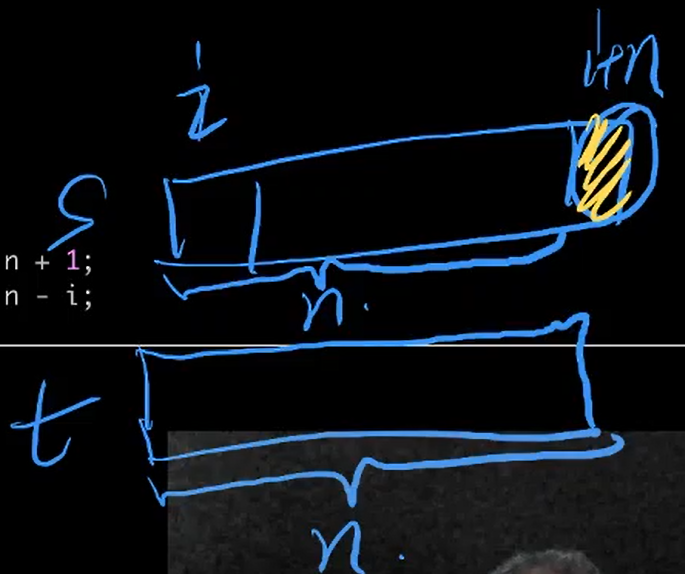 i
i+n
S
n + 1;
n - i;
n.
t
n.